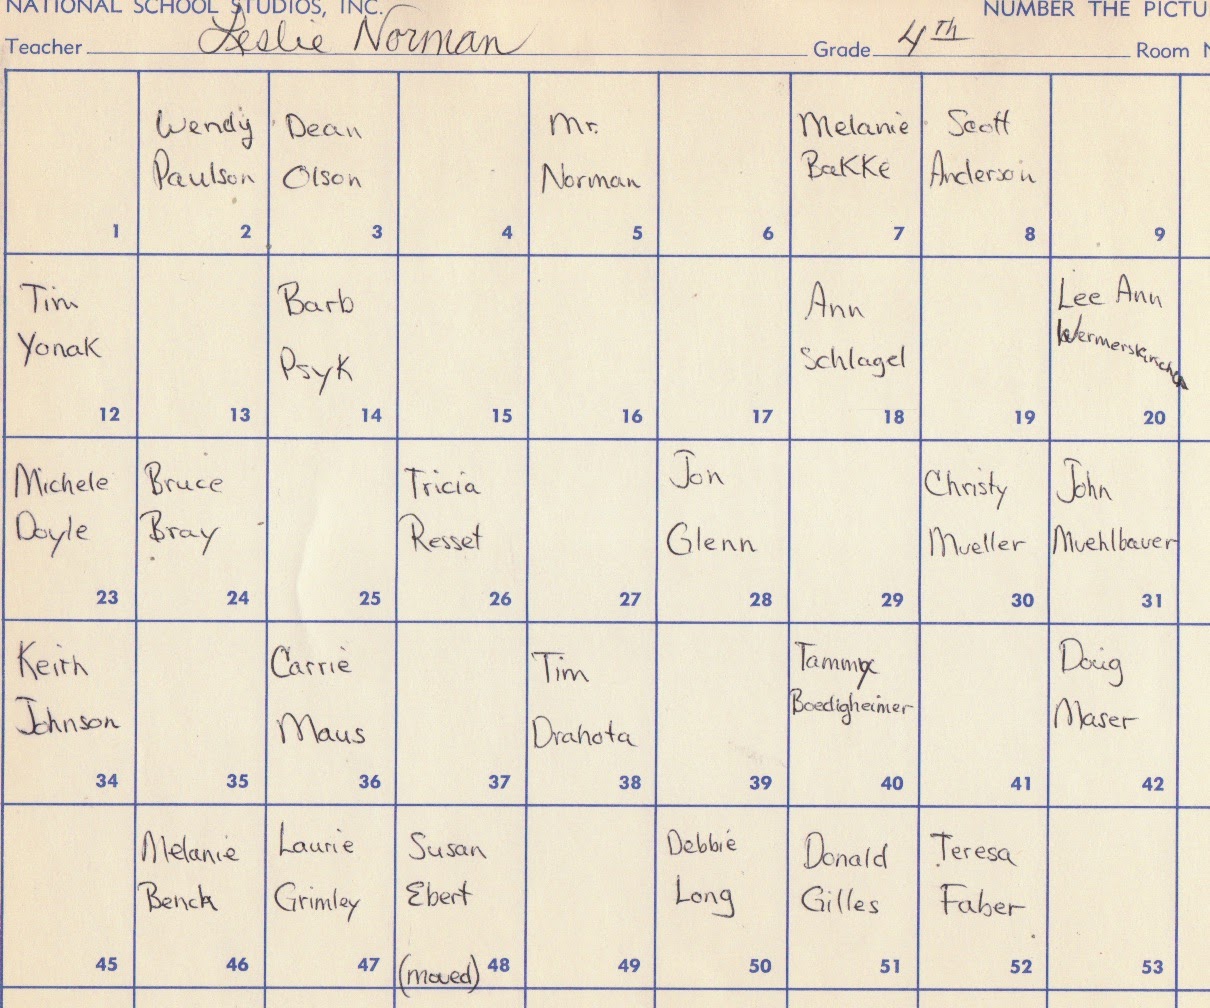 NATIONAL SCHOOL STUDIOS, INC. NUMBER THE PICTU
Teacher Leslie Norman Grade 4TH Room N
Wendy Dean Mr. Melanie Scott
Paulson Olson Norman Bakke Anderson
1 2 3 4 5 6 7 8 9
Tim Barb Ann Lee Ann
Yonak Psyk Schlagel Wermerskirchen
12 13 14 15 16 17 18 19 20
Michele Bruce Tricia Jon Christy John
Doyle Bray Resset Glenn Mueller Muehlbauer
23 24 25 26 27 28 29 30 31
Keith Carrie Tim Tammy Doug
Johnson Maus Drahota Boedigheimer Maser
34 35 36 37 38 39 40 41 42
Melanie Laurie Susan Debbie Donald Teresa
Benck Grimley Ebert Long Gilles Faber
45 46 47 (moved) 48 49 50 51 52 53